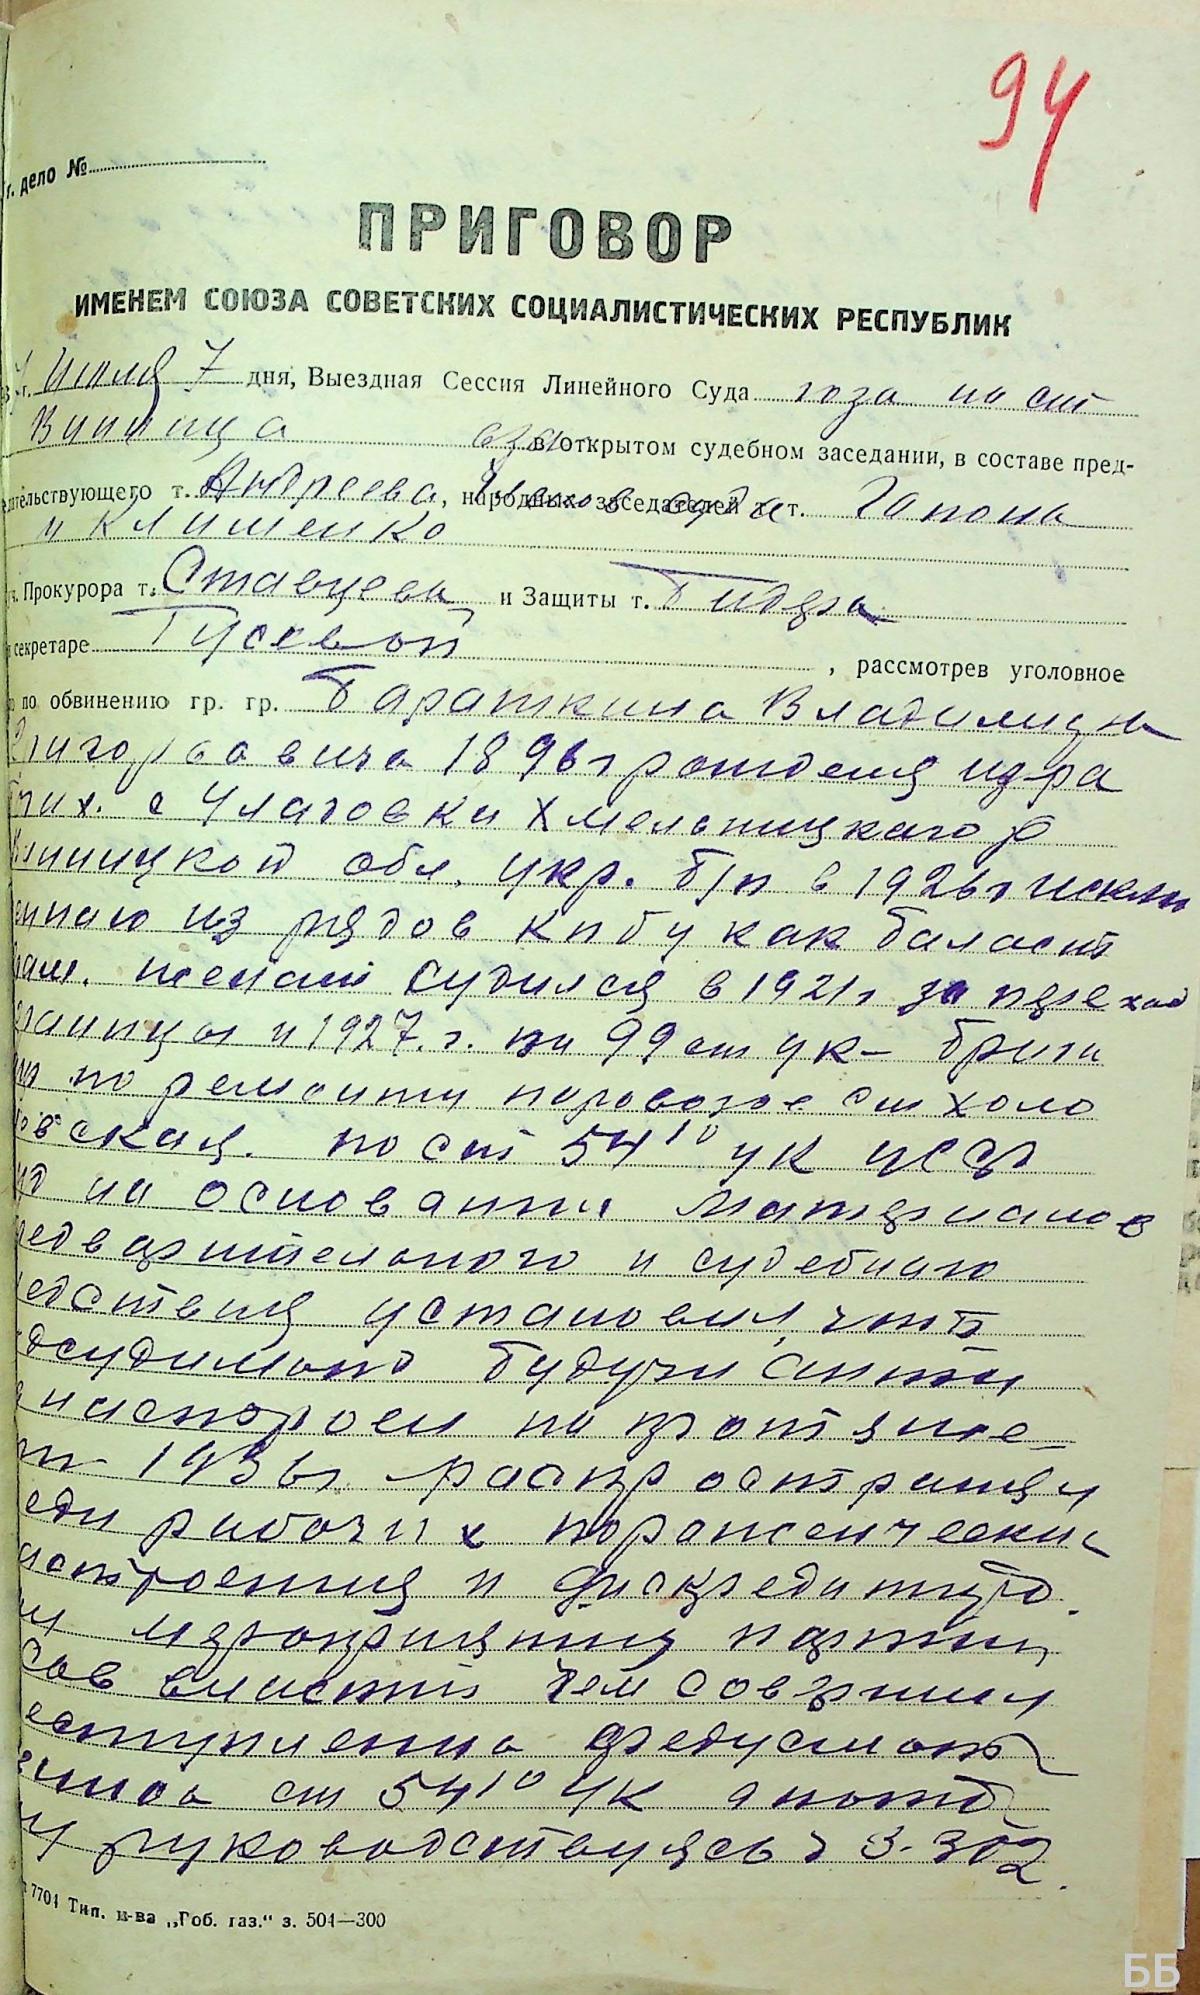 94
г. дело №
ПРИГОВОР
ИМЕНЕМ СОЮЗА СОВЕТСКИХ СОЦИАЛИСТИЧЕСКИХ РЕСПУБЛИК
г. Июля 7 дня, Выездная Сессия Линейного Суда юзжд на ст
Винница в открытом судебном заседании, в составе пред-
ательствующего т. Андреева, народных заседателей т. т. Гапона
и Клименко
Прокурора т. Ставцева и Защиты т.
секретаре Гусевой, рассмотрев уголовное
по обвинению гр. гр. Бараткина Владимира
Григорьевича 1896 г рождения из ра
с Улановки Хмельницкаго р
Винницкой обл. укр. б/п в 1926 г исклю
ченнаго из рядов КПбУ как баласт
женат судился в 1921 г за переход
границы и 1927. г. по 99 ст ук- брига
по ремонту паровозов ст холо
вская. по ст 54 10 УК УССР
на основании материалов
редварительного и судебнаго
едствия установил, что
дсудимый будучи анти
настроен на протяже-
1936 г распространял
еди рабочих пораженческие
астроения и дискредитиро
мероприятия партии
Сов власти чем совершил
еступления предусмот
ст 54 10 УК а потд
му руководствуясь 302
7704 Тип. и-ва „Гоб. газ.“ з. 504—300
ББ